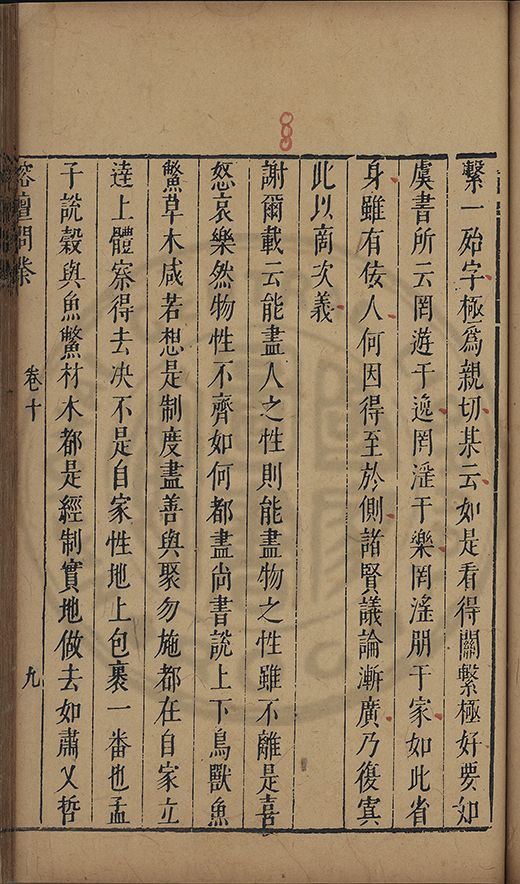 繫一殆字極爲親切某云如是看得關繫極好要如
虞書所云罔遊于逸罔淫于樂罔滛朋于家如此省
身雖有佞人何因得至於側諸賢議論漸廣乃復寘
此以商次義
謝爾載云能盡人之性則能盡物之性雖不離是喜
怒哀樂然物性不齊如何都盡尚書說上下鳥獸魚
鱉草木咸若想是制度盡善與聚勿施都在自家立
達上體察得去决不是自家性地上包裹一番也孟
子說穀與魚鱉材木都是經制實地做去如肅乂哲
榕壇問業 卷十 九
8